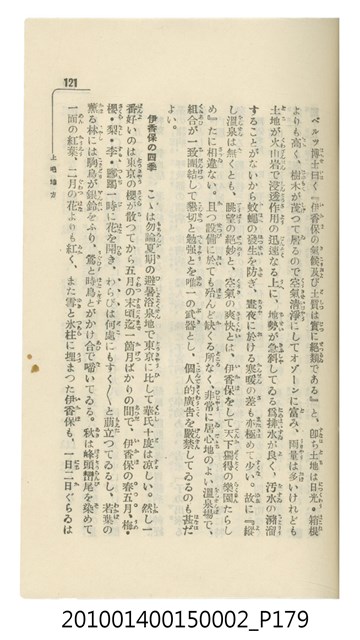 ベルツ博士曰く『伊香保の氣候及び土質は實に絕類である』と、卽ち土地は日光・箱根
よりも高く、樹木が茂つて居るので空氣淸淨にしてオゾーンに富み、雨量は多いけれども
土地が火山岩で浸透作用の迅速なる上に、地勢が急斜してゐる爲排水が良く、汚水の瀦溜
することがないから蚊蠅の發生を防ぎ、晝夜に於ける寒暖の差も亦極めて少い。故に『縱
し溫泉は無くとも、眺望の絕妙と、空氣の爽快とは、伊香保をして天下獨得の樂園たらし
め』たに相違ない。且つ設備に於ても殆んど缺くる所なく、非常に居心地のよい溫泉場で、
組合が一致團結して懇切と勉强とを唯一の武器とし、個人的廣吿を嚴禁してゐるのも甚だ
よい。
伊香保の四季 こゝは勿論夏期の避暑浴泉地で東京に比して華氏十度は涼しい。然し一
番好いのは東京の櫻が散つてから五月の末頃迄一箇月ばかりの間で、伊香保の春五月、梅・
櫻・梨・李・躑躅一時に花を開き、わらびは何處にもすく〳〵と萠立つてゐるし、若葉の
薰る林には駒鳥が銀鈴をふり、鶯と時鳥とがかけ合で囀いてゐる。秋は峰頭巒尾を染めて
一面の紅葉、二月の花よりも紅く、また雪と氷柱に埋まつた伊香保も、一日二日ぐらゐは
121
上毛地方
201001400150002_P179